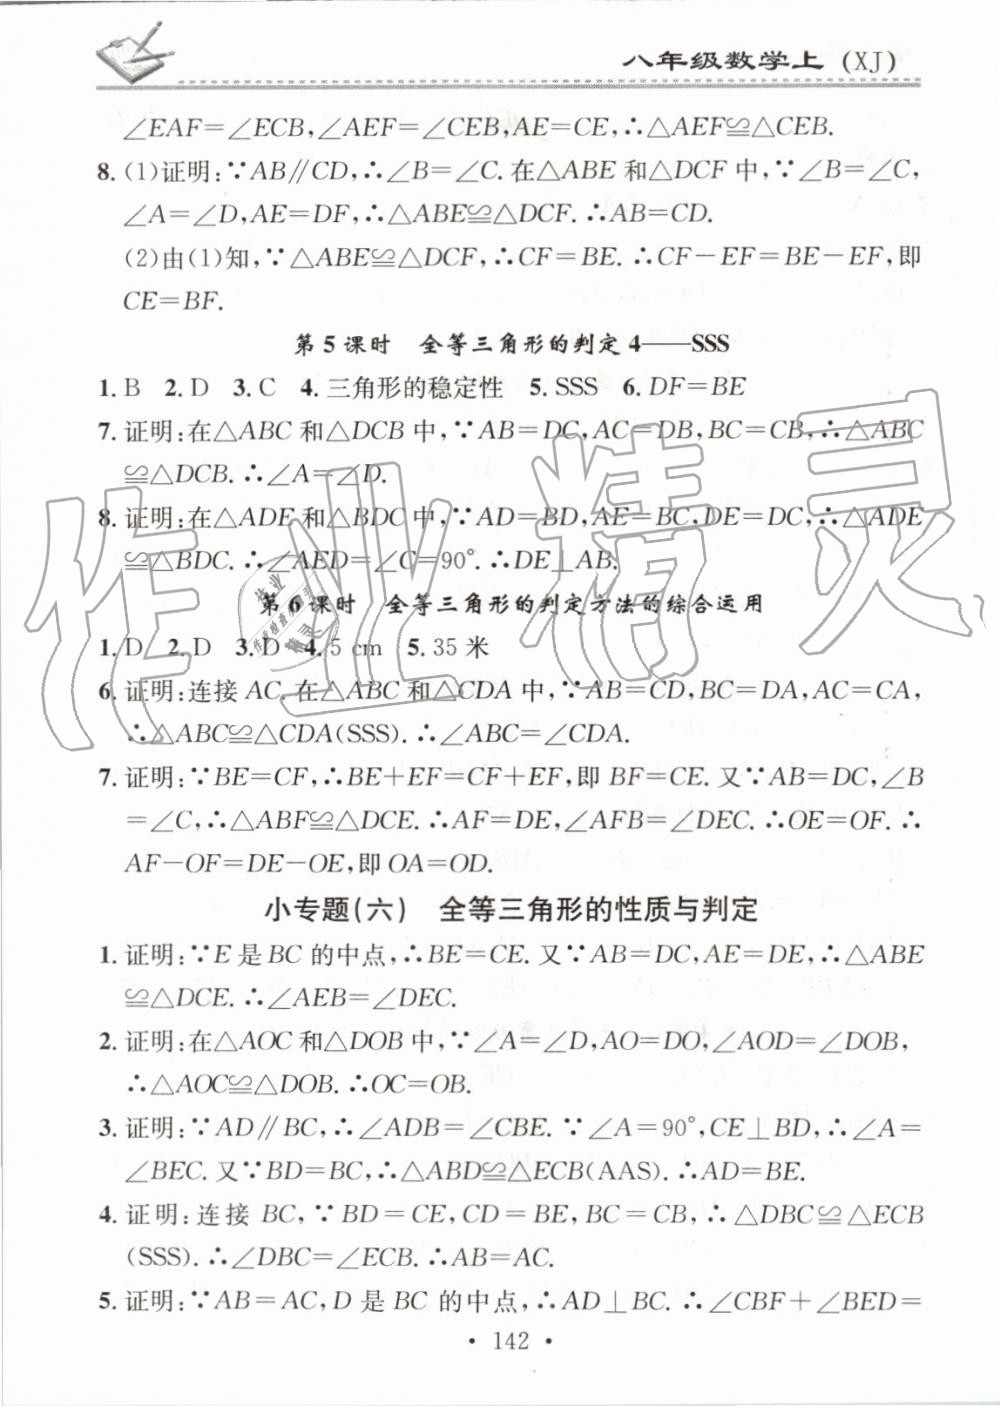 八年级数学上(XJ)
∠EAF=∠ECB,∠AEF=∠CEB,AE=CE,∴△AEF≌△CEB.
8. (1)证明:∵AB∥CD,∴∠B=∠C. 在△ABE 和△DCF 中,∵∠B=∠C,
∠A=∠D,AE=DF,∴△ABE≌△DCF. ∴AB=CD.
(2)由(1)知,∵△ABE≌△DCF,∴CF=BE. ∴CF-EF=BE-EF,即
CE=BF.
第 5 课时 全等三角形的判定 4——SSS
1. B 2. D 3. C 4. 三角形的稳定性 5. SSS 6. DF=BE
7. 证明:在△ABC 和△DCB 中,∵AB=DC,AC=DB,BC=CB,∴△ABC
≌△DCB. ∴∠A=∠D.
8. 证明:在△ADE 和△BDC 中,∵AD=BD,AE=BC,DE=DC,∴△ADE
≌△BDC. ∴∠AED=∠C=90°. ∴DE⊥AB.
第 6 课时 全等三角形的判定方法的综合运用
1. D 2. D 3. D 4. 5 cm 5. 35 米
6. 证明:连接 AC. 在△ABC 和△CDA 中,∵AB=CD,BC=DA,AC=CA,
∴△ABC≌△CDA(SSS). ∴∠ABC=∠CDA.
7. 证明:∵BE=CF,∴BE+EF=CF+EF,即 BF=CE. 又∵AB=DC,∠B
=∠C,∴△ABF≌△DCE. ∴AF=DE,∠AFB=∠DEC. ∴OE=OF. ∴
AF-OF=DE-OE,即 OA=OD.
小专题(六) 全等三角形的性质与判定
1. 证明:∵E 是 BC 的中点,∴BE=CE. 又∵AB=DC,AE=DE,∴△ABE
≌△DCE. ∴∠AEB=∠DEC.
2. 证明:在△AOC 和△DOB 中,∵∠A=∠D,AO=DO,∠AOD=∠DOB,
∴△AOC≌△DOB. ∴OC=OB.
3. 证明:∵AD∥BC,∴∠ADB=∠CBE. ∵∠A=90°,CE⊥BD,∴∠A=
∠BEC. 又∵BD=BC,∴△ABD≌△ECB(AAS). ∴AD=BE.
4. 证明:连接 BC,∵BD=CE,CD=BE,BC=CB,∴△DBC≌△ECB
(SSS). ∴∠DBC=∠ECB. ∴AB=AC.
5. 证明:∵AB=AC,D 是 BC 的中点,∴AD⊥BC. ∴∠CBF+∠BED=
· 142 ·
作业精灵